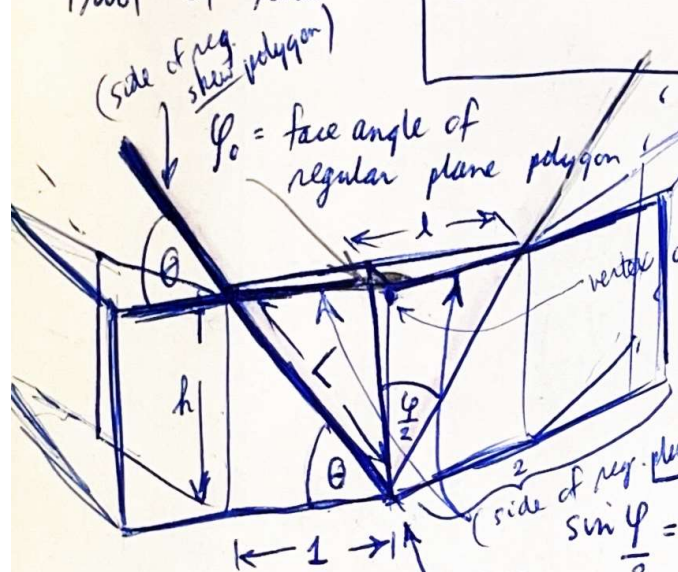 (side of reg.
skew polygon)
φ₀ = face angle of
regular plane polygon
θ
l
vertex
h
L
φ/2
θ
2
1
(side of reg.
sin φ/2 =